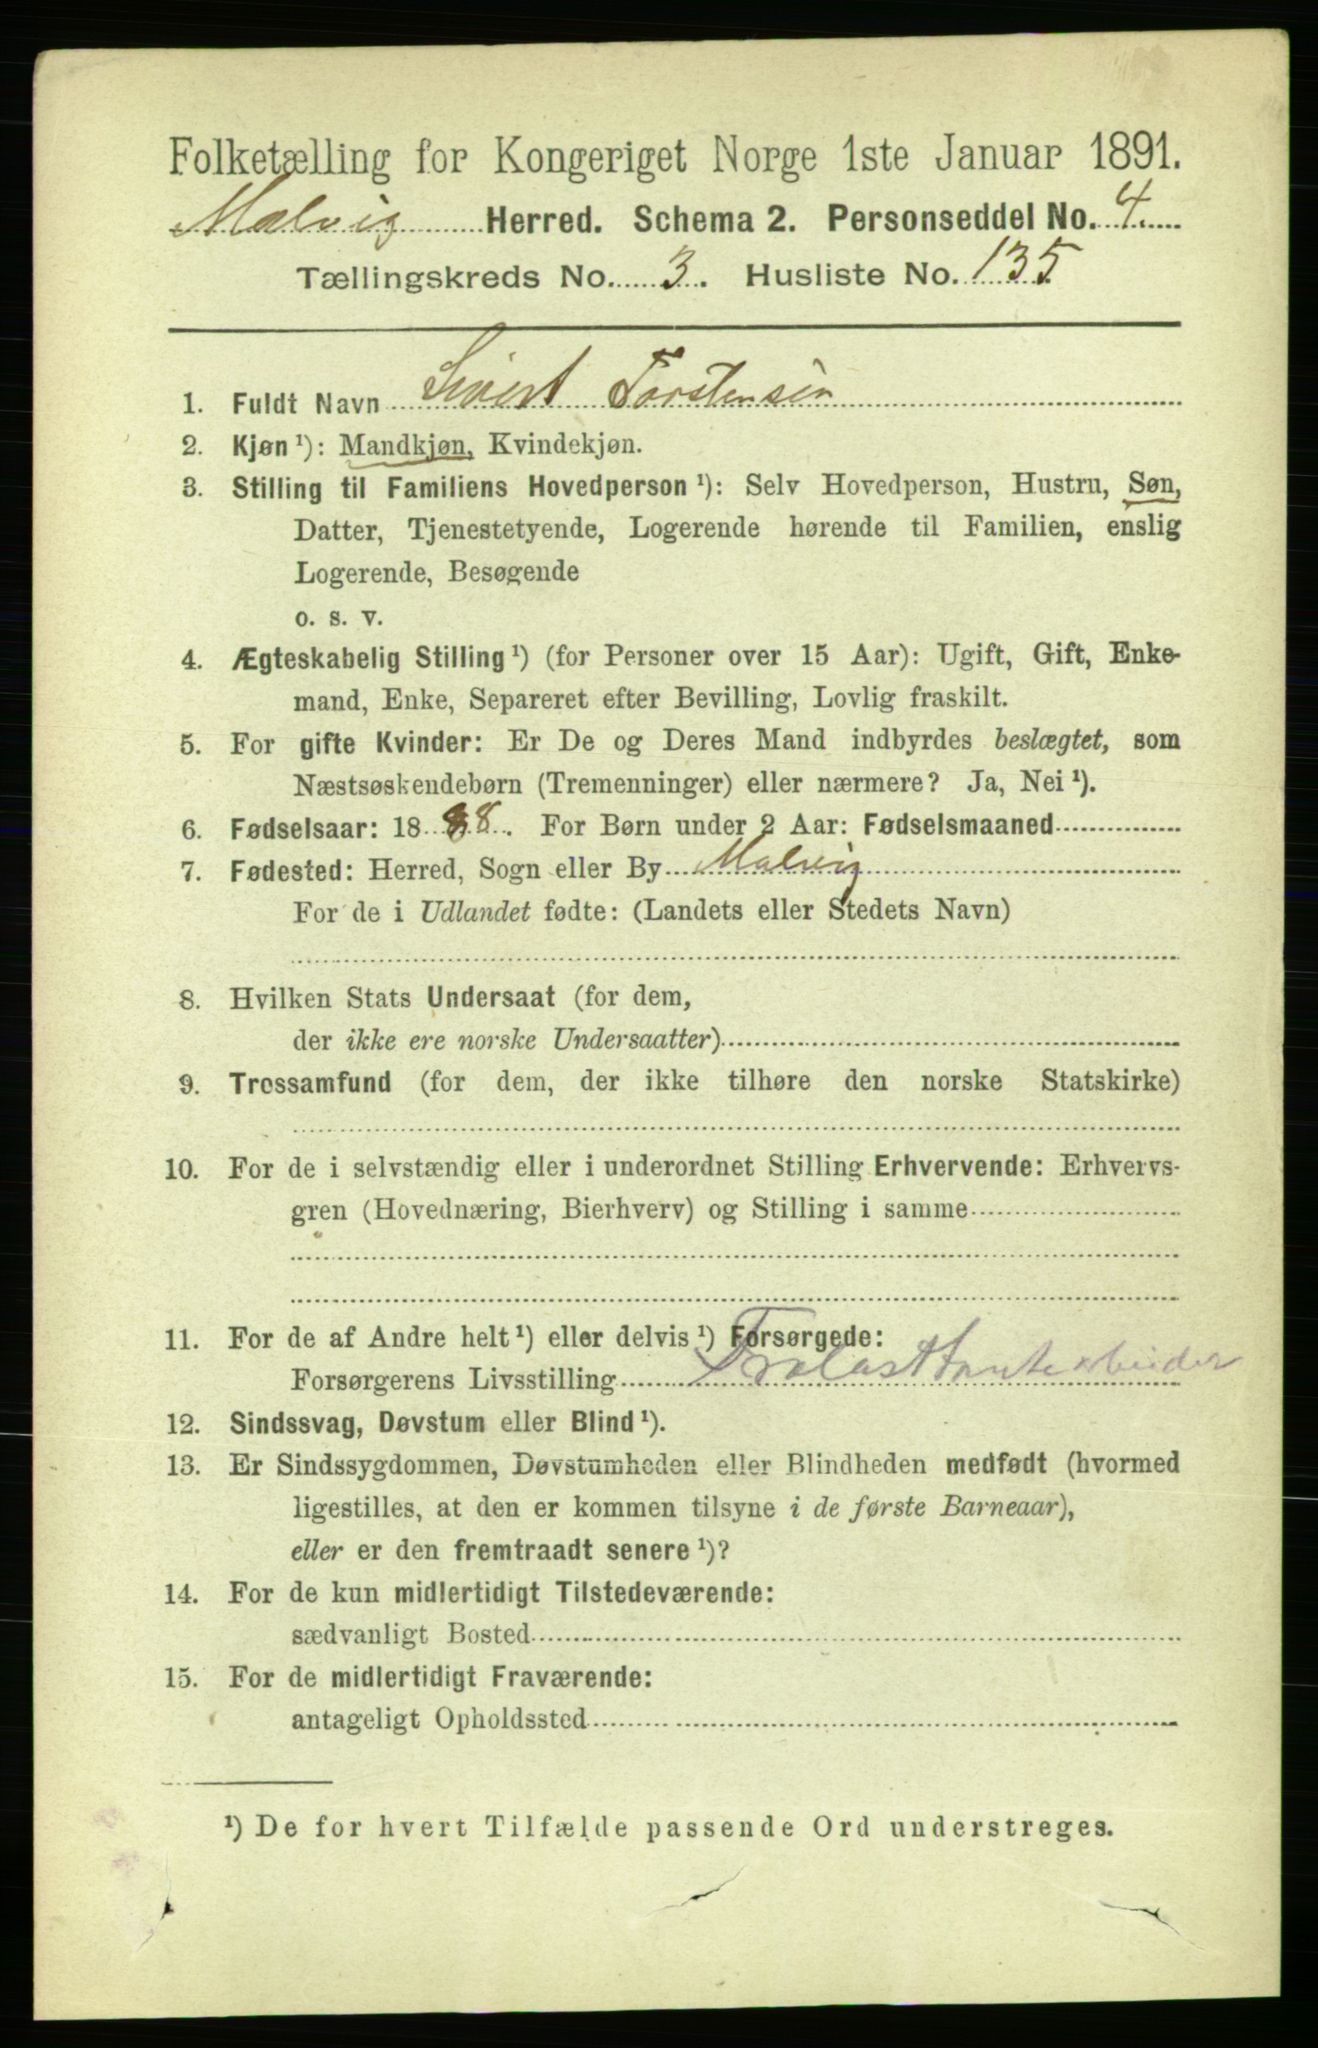 Folketælling for Kongeriget Norge 1ste Januar 1891.
Malvig Herred. Schema 2. Personseddel No. 4.
Tællingskreds No. 3. Husliste No. 135
1. Fuldt Navn Sivert Torstensen
2. Kjøn ¹): Mandkjøn, Kvindekjøn.
3. Stilling til Familiens Hovedperson ¹): Selv Hovedperson, Hustru, Søn,
Datter, Tjenestetyende, Logerende hørende til Familien, enslig
Logerende, Besøgende
o. s. v.
4. Ægteskabelig Stilling ¹) (for Personer over 15 Aar): Ugift, Gift, Enke-
mand, Enke, Separeret efter Bevilling, Lovlig fraskilt.
5. For gifte Kvinder: Er De og Deres Mand indbyrdes beslægtet, som
Næstsøskendebørn (Tremenninger) eller nærmere? Ja, Nei ¹).
6. Fødselsaar: 1888. For Børn under 2 Aar: Fødselsmaaned
7. Fødested: Herred, Sogn eller By Malvig
For de i Udlandet fødte: (Landets eller Stedets Navn)
8. Hvilken Stats Undersaat (for dem,
der ikke ere norske Undersaatter)
9. Trossamfund (for dem, der ikke tilhøre den norske Statskirke)
10. For de i selvstændig eller i underordnet Stilling Erhvervende: Erhvervs-
gren (Hovednæring, Bierhverv) og Stilling i samme
11. For de af Andre helt ¹) eller delvis ¹) Forsørgede:
Forsørgerens Livsstilling
12. Sindssvag, Døvstum eller Blind ¹).
13. Er Sindssygdommen, Døvstumheden eller Blindheden medfødt (hvormed
ligestilles, at den er kommen tilsyne i de første Barneaar),
eller er den fremtraadt senere ¹)?
14. For de kun midlertidigt Tilstedeværende:
sædvanligt Bosted
15. For de midlertidigt Fraværende:
antageligt Opholdssted
¹) De for hvert Tilfælde passende Ord understreges.